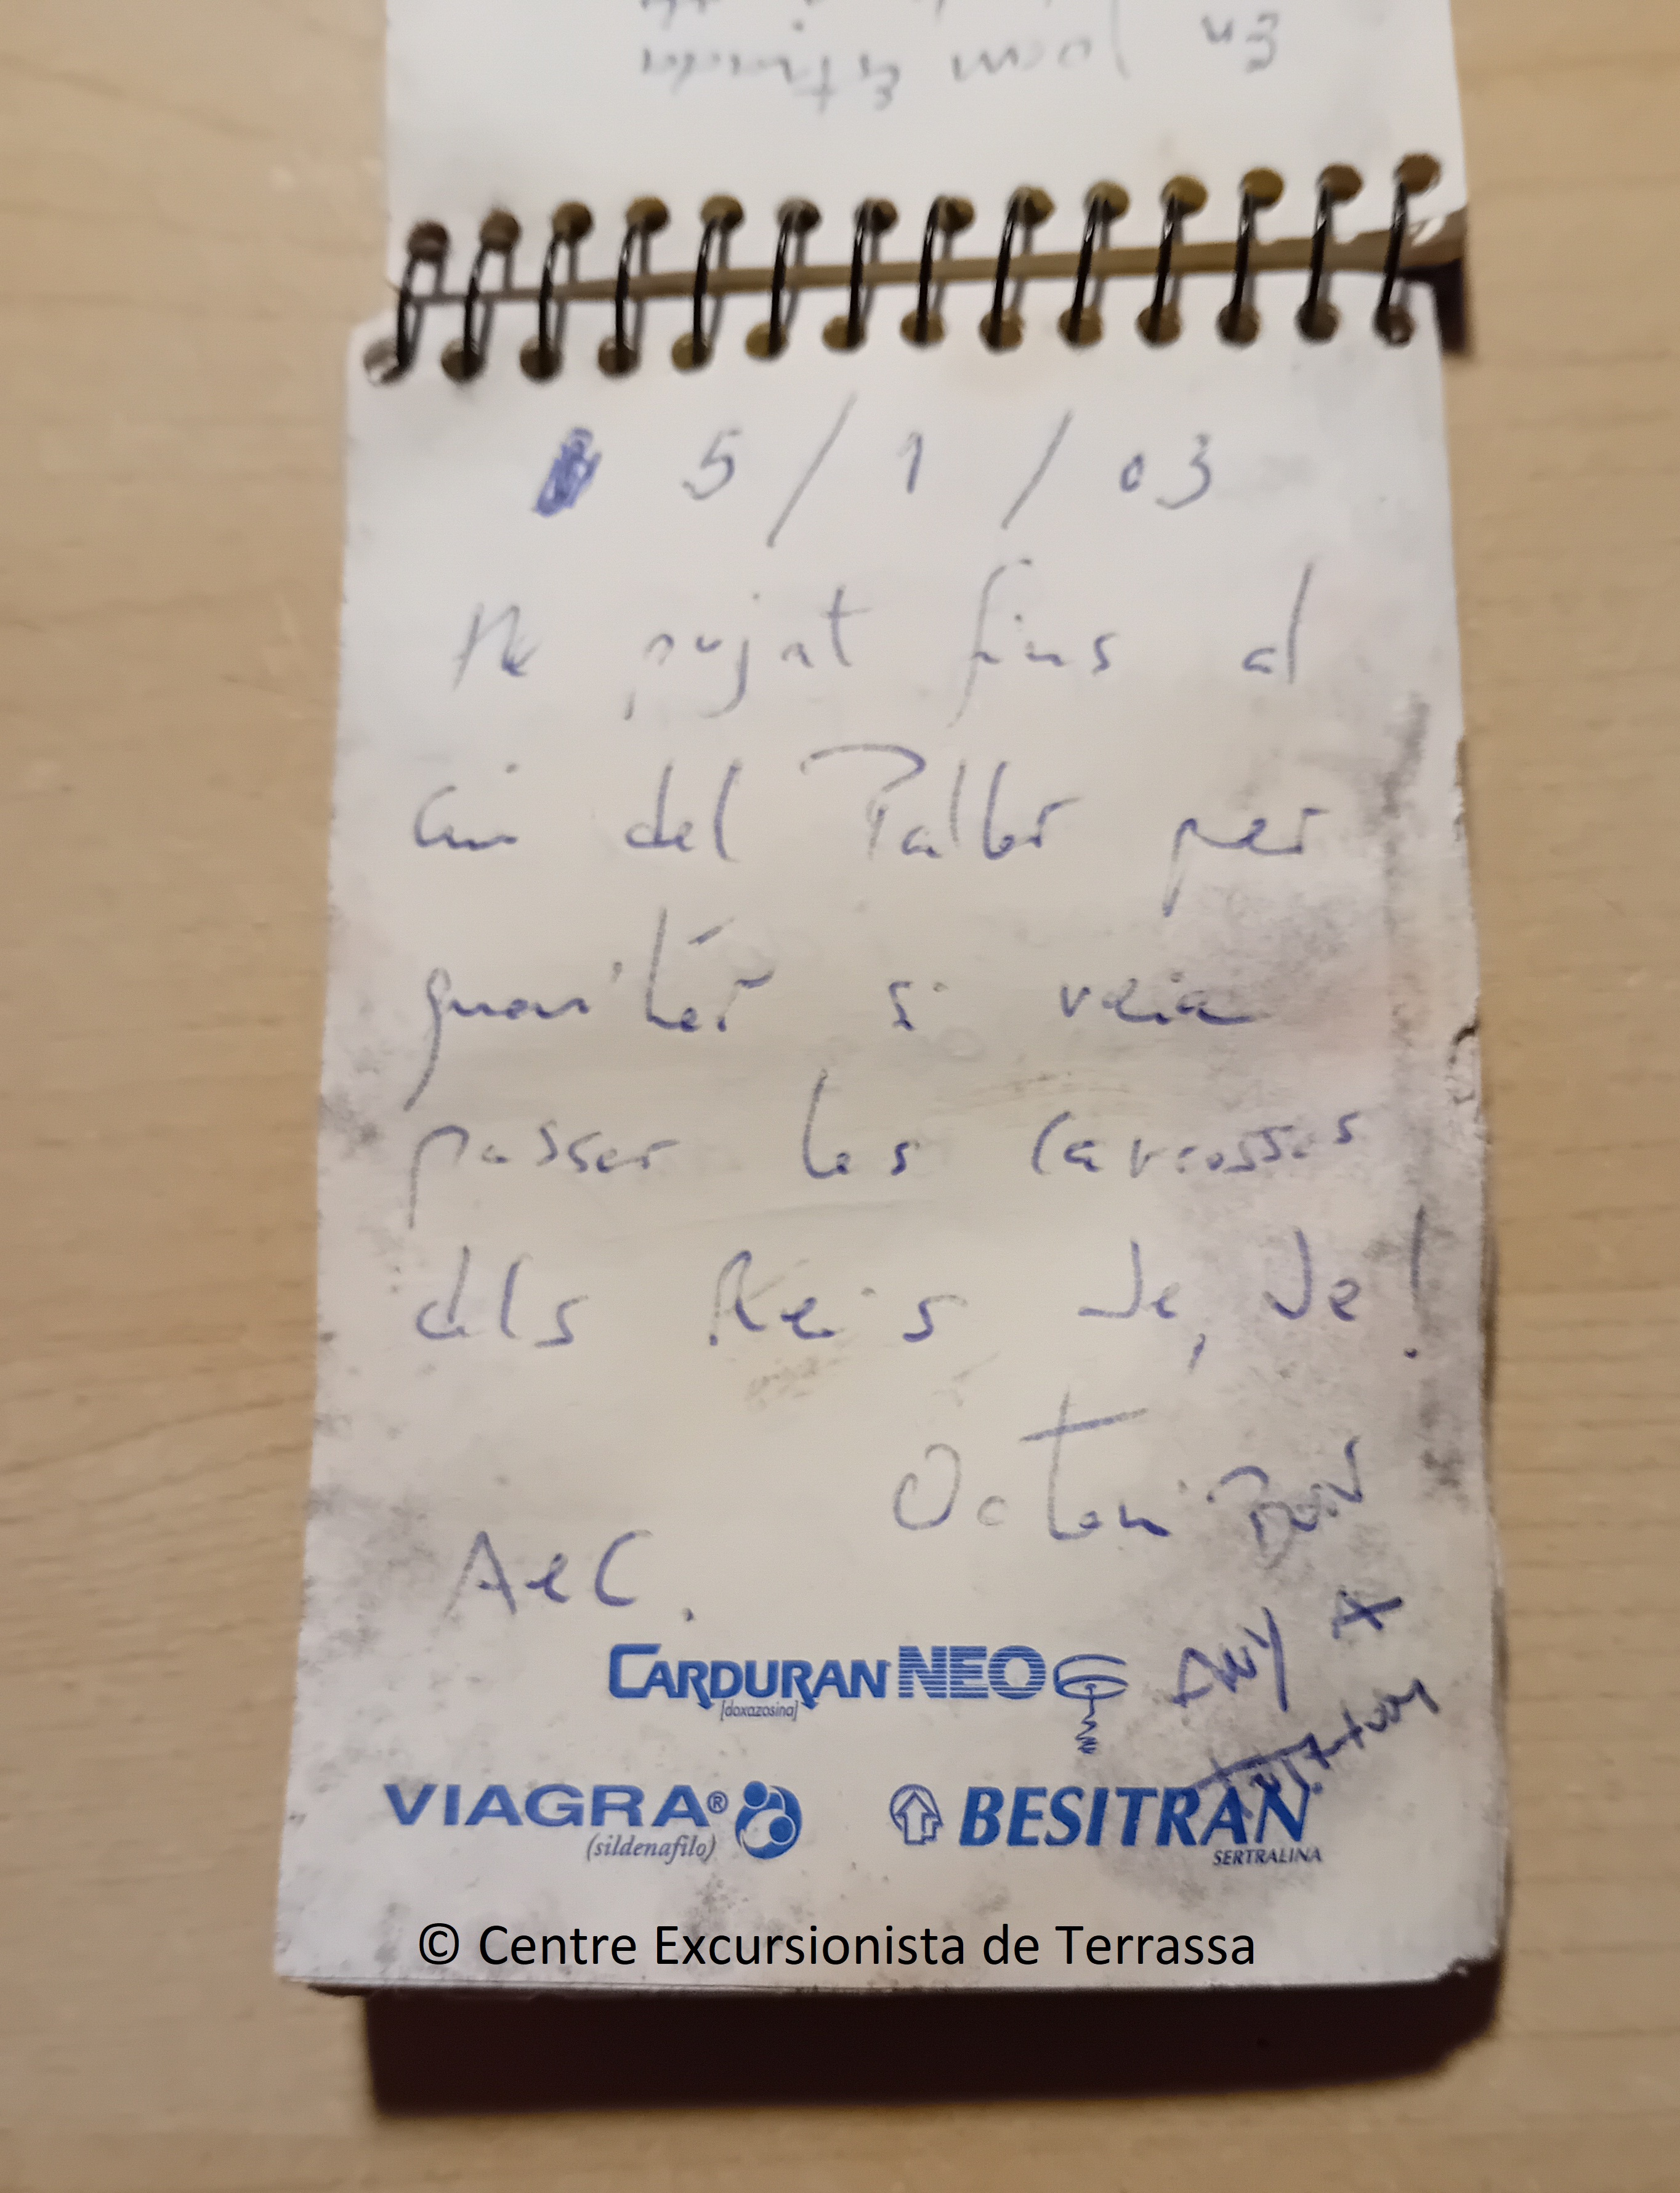 En Joan Estrader
5 / 1 / 03
He pujat fins al
cim del Paller per
guaitar si veia
passar les carrosses
dels Reis Je, Je!
Octavi
AeC.
CARDURAN NEO
[doxazosina]
ANY
VIAGRA®
(sildenafilo)
BESITRAN
SERTRALINA
© Centre Excursionista de Terrassa